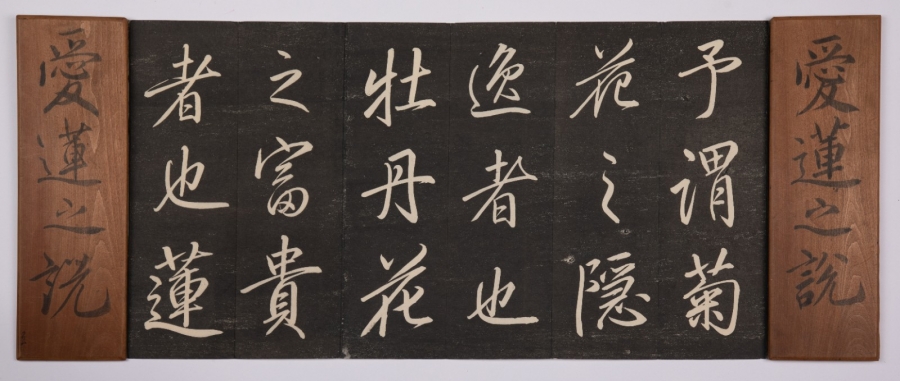 愛蓮之說
予謂菊
花之隱
逸者也
牡丹花
之富貴
者也蓮
愛蓮之說